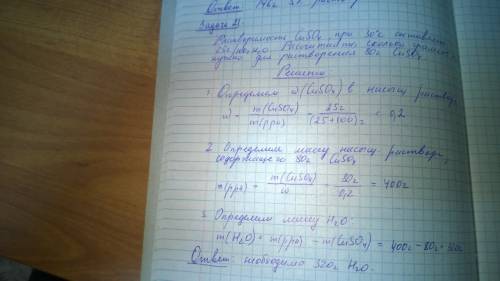 Ответ: 146г 5% раствор
Задача 21.
Растворимость CuSO₄ при 30°C составляет
25г/100г H₂O. Рассчитайте, сколько граммов
нужно для растворения 80г CuSO₄
Решение
1. Определяем ω(CuSO₄) в насыщ. растворе
ω = m(CuSO₄) / m(р-ра) = 25г / (25+100)г = 0,2
2. Определяем массу насыщ. раствора,
содержащего 80г CuSO₄
m(р-ра) = m(CuSO₄) / ω = 80г / 0,2 = 400г
3. Определяем массу H₂O:
m(H₂O) = m(р-ра) - m(CuSO₄) = 400г - 80г = 320г
Ответ: необходимо 320г H₂O.